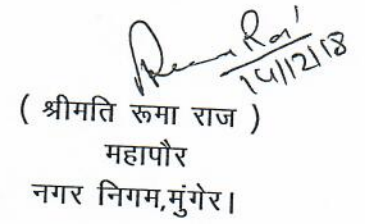 Ruma Raj
14/12/18
( श्रीमति रूमा राज )
महापौर
नगर निगम,मुंगेर।